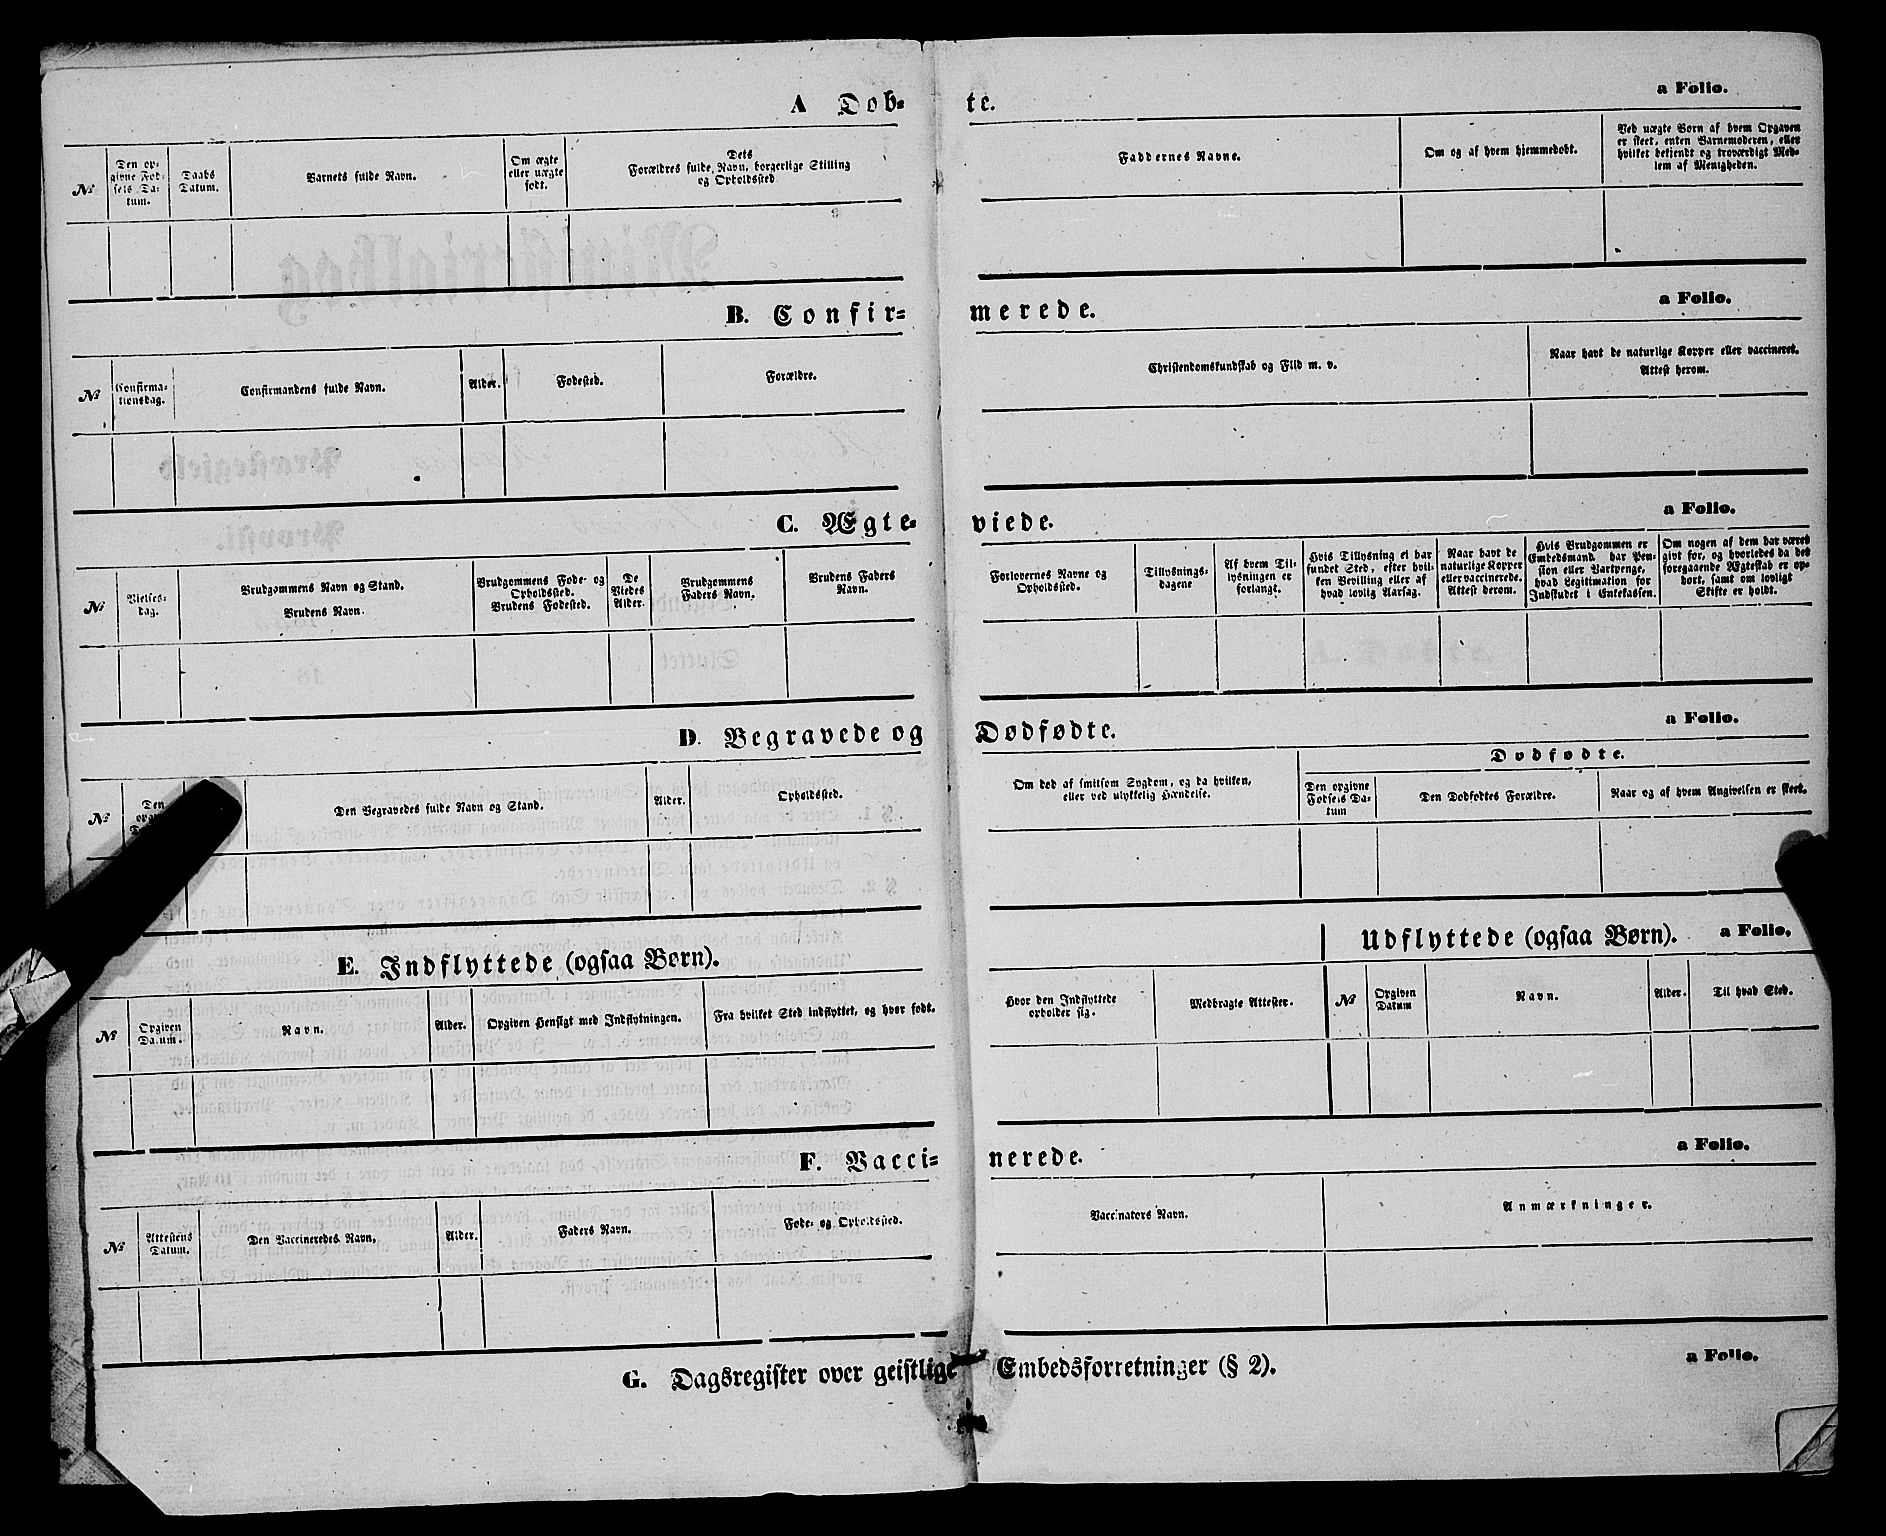 A Døb-te.
a Folio.
№
Den opgivne Fødsels Datum.
Daabs Datum.
Barnets fulde Navn.
Om ægte eller uægte født.
Dets Forældres fulde Navn, borgerlige Stilling og Opholdssted
Faddernes Navne.
Om og af hvem hjemmedøbt.
Ved uægte Børn af hvem Opgaven er skeet, enten Barnemoderen, eller hvilket bekjendt og troværdigt Medlem af Menigheden.
B. Confir-merede.
a Folio.
№
Confirmationsdag.
Confirmandens fulde Navn.
Alder.
Fødested.
Forældre.
Christendomskundskab og Flid m. v.
Naar havt de naturlige Kopper eller vaccineret. Attest herom.
C. Ægte-viede.
a Folio.
№
Vielsesdag.
Brudgommens Navn og Stand.
Brudens Navn.
Brudgommens Føde- og Opholdssted.
Brudens Fødested.
De Viedes Alder.
Brudgommens Faders Navn.
Brudens Faders Navn.
Forlovernes Navne og Opholdssted.
Tillysningsdagene
Af hvem Tillysningen er forlangt.
Hvis Tillysning ei har fundet Sted, efter hvilken Bevilling eller af hvad lovlig Aarsag.
Naar havt de naturlige Kopper eller vaccinerede. Attest herom.
Hvis Brudgommen er Embedsmand, har Pension eller Vartpenge, hvad Legitimation for Indskudet i Enkekassen.
Om nogen af dem har været givt før, og hvorledes da det foregaaende Ægteskab er ophørt, samt om lovligt Skifte er holdt.
D. Begravede og Dødfødte.
a Folio.
№
Den
Den Begravedes fulde Navn og Stand.
Alder.
Opholdssted.
Om død af smitsom Sygdom, og da hvilken, eller ved ulykkelig Hændelse.
Dødfødte.
Den opgivne Fødsels Datum
Den Dødfødtes Forældre.
Naar og af hvem Angivelsen er skeet.
E. Indflyttede (ogsaa Børn).
Udflyttede (ogsaa Børn).
a Folio.
№
Opgiven Datum.
Navn.
Alder.
Opgiven Hensigt med Indflytningen.
Fra hvilket Sted indflyttet, og hvor født.
Hvor den Indflyttede opholder sig.
Medbragte Attester.
№
Opgiven Datum
Navn.
Alder.
Til hvad Sted.
F. Vacci-nerede.
a Folio.
№
Attestens Datum.
Den Vaccineredes Navn,
Alder.
Faders Navn.
Føde- og Opholdssted.
Vaccinators Navn.
Anmærkninger.
G. Dagsregister over geistlige Embedsforretninger (§ 2).
a Folio.